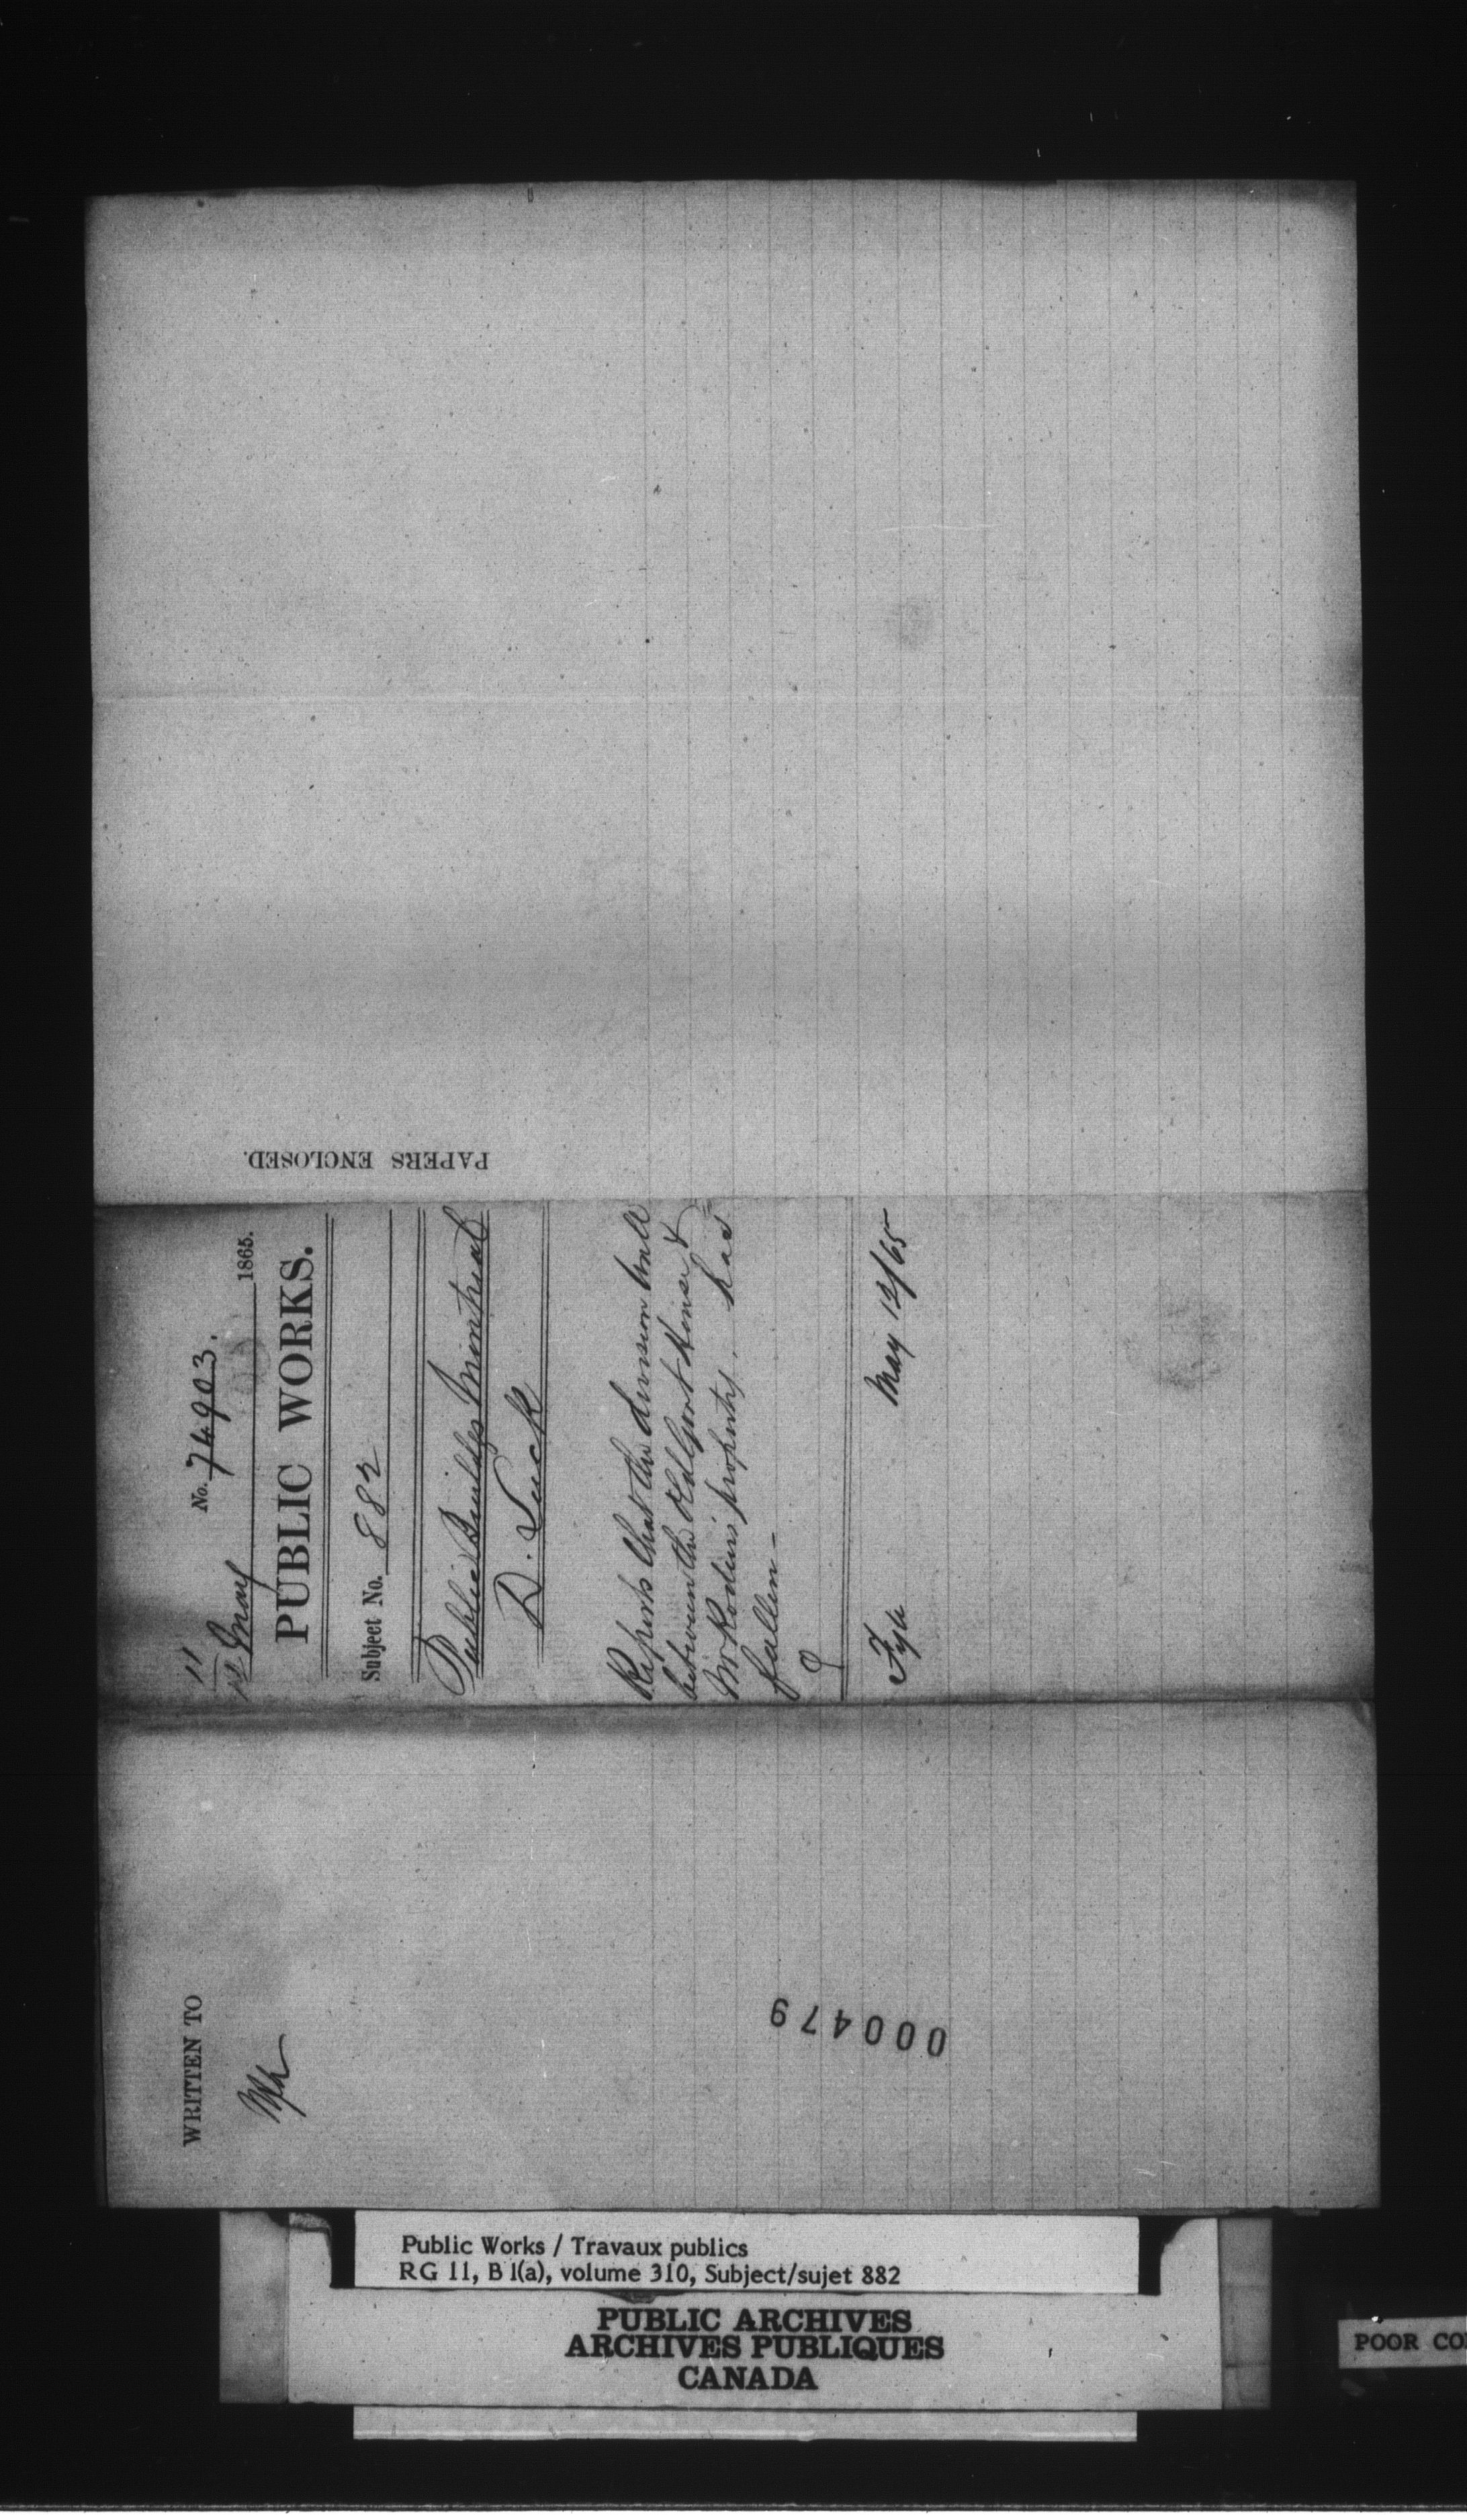 PAPERS ENCLOSED.
No. 74903.
11
12 May 1865.
PUBLIC WORKS.
Subject No. 882
Public Buildgs Montreal
D. Luck
Reports that the division wall
between the Old Govt House &
Mr Rodiers property, has
fallen -
Fyle May 12/65
WRITTEN TO
000479
Public Works / Travaux publics
RG 11, B 1(a), volume 310, Subject/sujet 882
PUBLIC ARCHIVES
ARCHIVES PUBLIQUES
CANADA
POOR